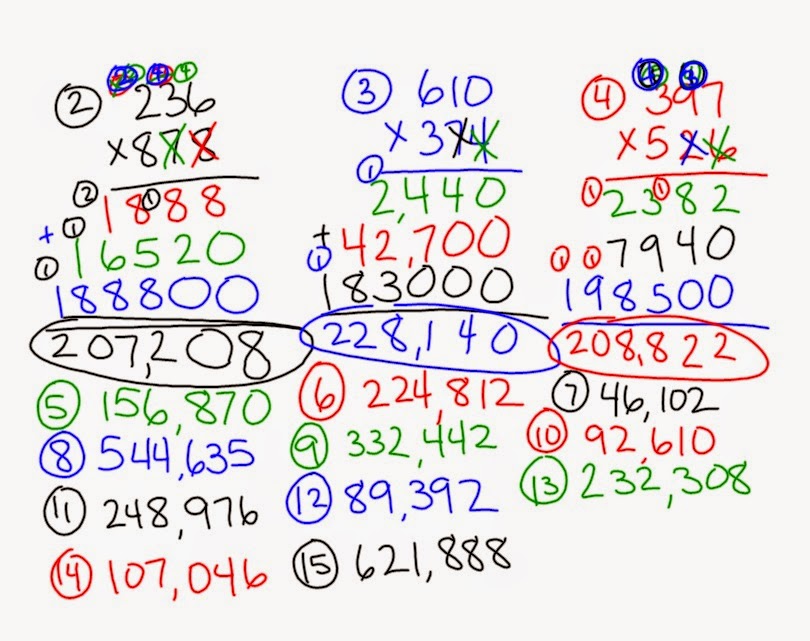 ② 236
×878
② ① 1888
+ ① 16520
① 188800
207,208
③ 610
×374
①
2,440
+ 42,700
① 183000
228,140
④ 397
×526
① ① 2382
7940
① ① 198500
208,822
⑤ 156,870
⑥ 224,812
⑦ 46,102
⑧ 544,635
⑨ 332,442
⑩ 92,610
⑪ 248,976
⑫ 89,392
⑬ 232,308
⑭ 107,046
⑮ 621,888